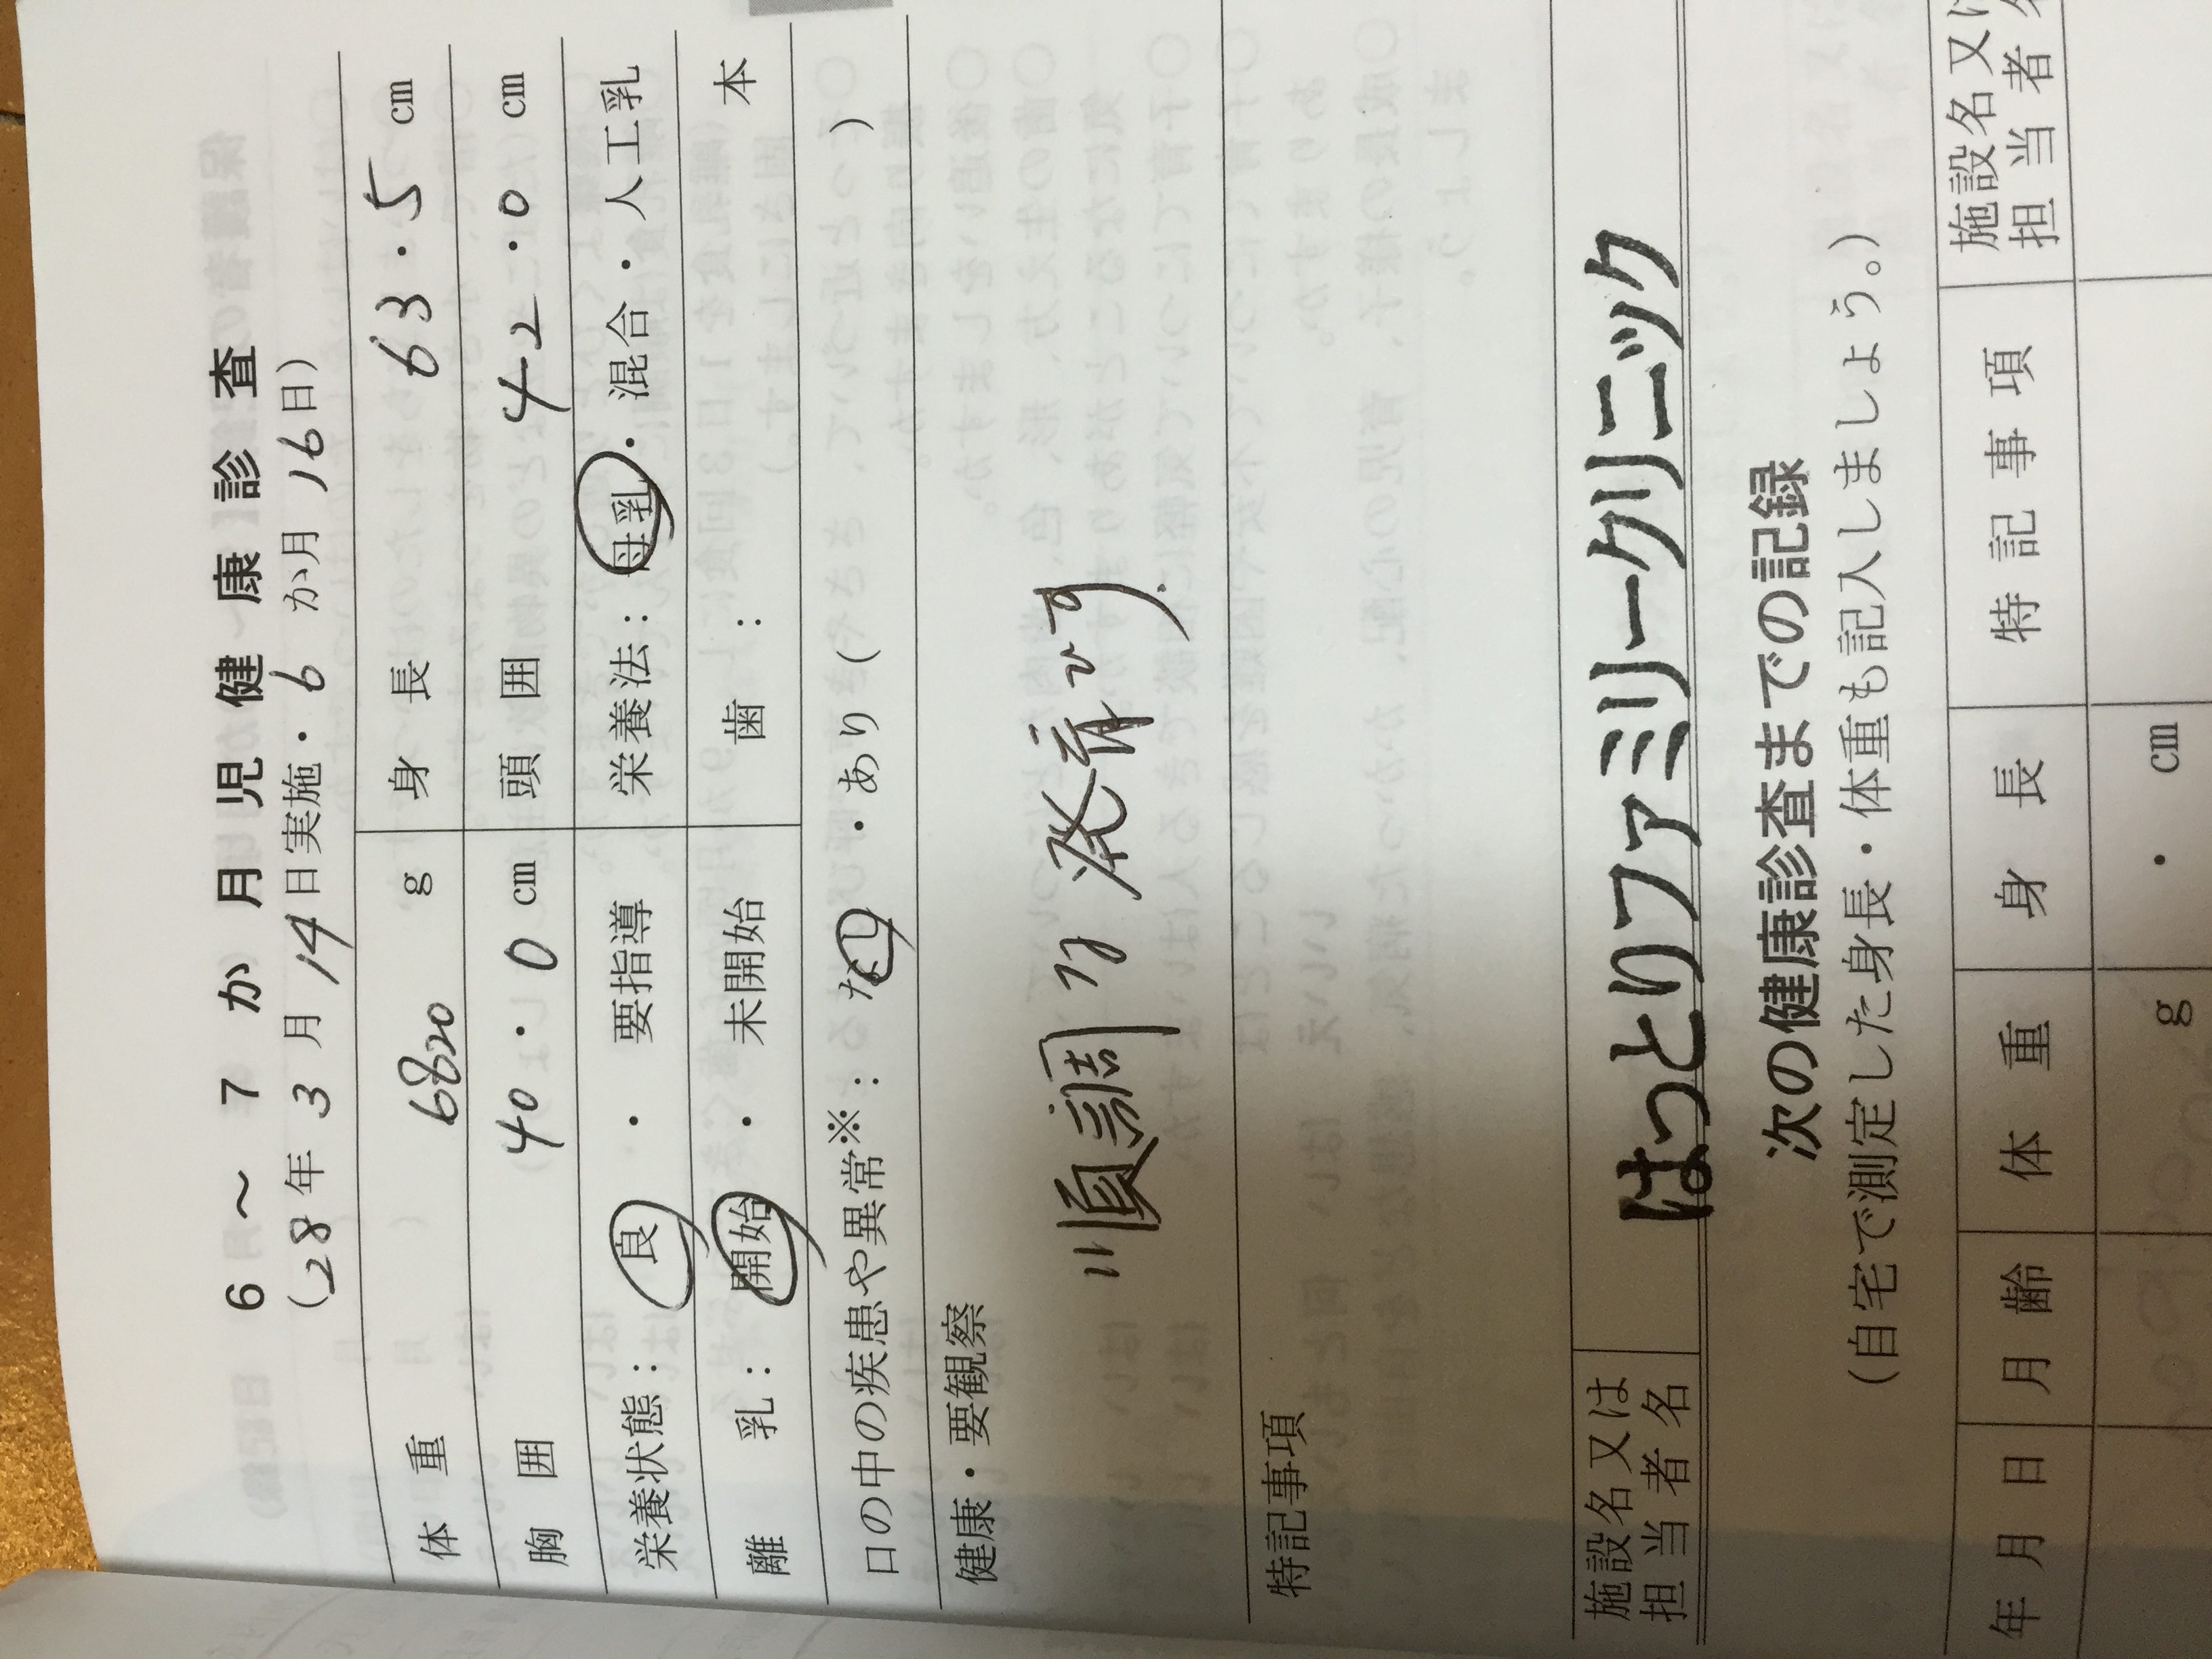 6～7か月児健康診査
(28年3月14日実施・6か月16日)
体重 6820 g 身長 63.5 cm
胸囲 40.0 cm 頭囲 42.0 cm
栄養状態： 良 ・ 要指導 栄養法：母乳・混合・人工乳
離乳： 開始 ・ 未開始 歯： 本
口の中の疾患や異常※： なし ・ あり( )
健康・要観察
順調な発育です.
特記事項
施設名又は
担当者名
はっとりファミリークリニック
次の健康診査までの記録
(自宅で測定した身長・体重も記入しましょう。)
年月日 月齢 体重 身長 特記事項 施設名又は
担当者名
g ・ cm